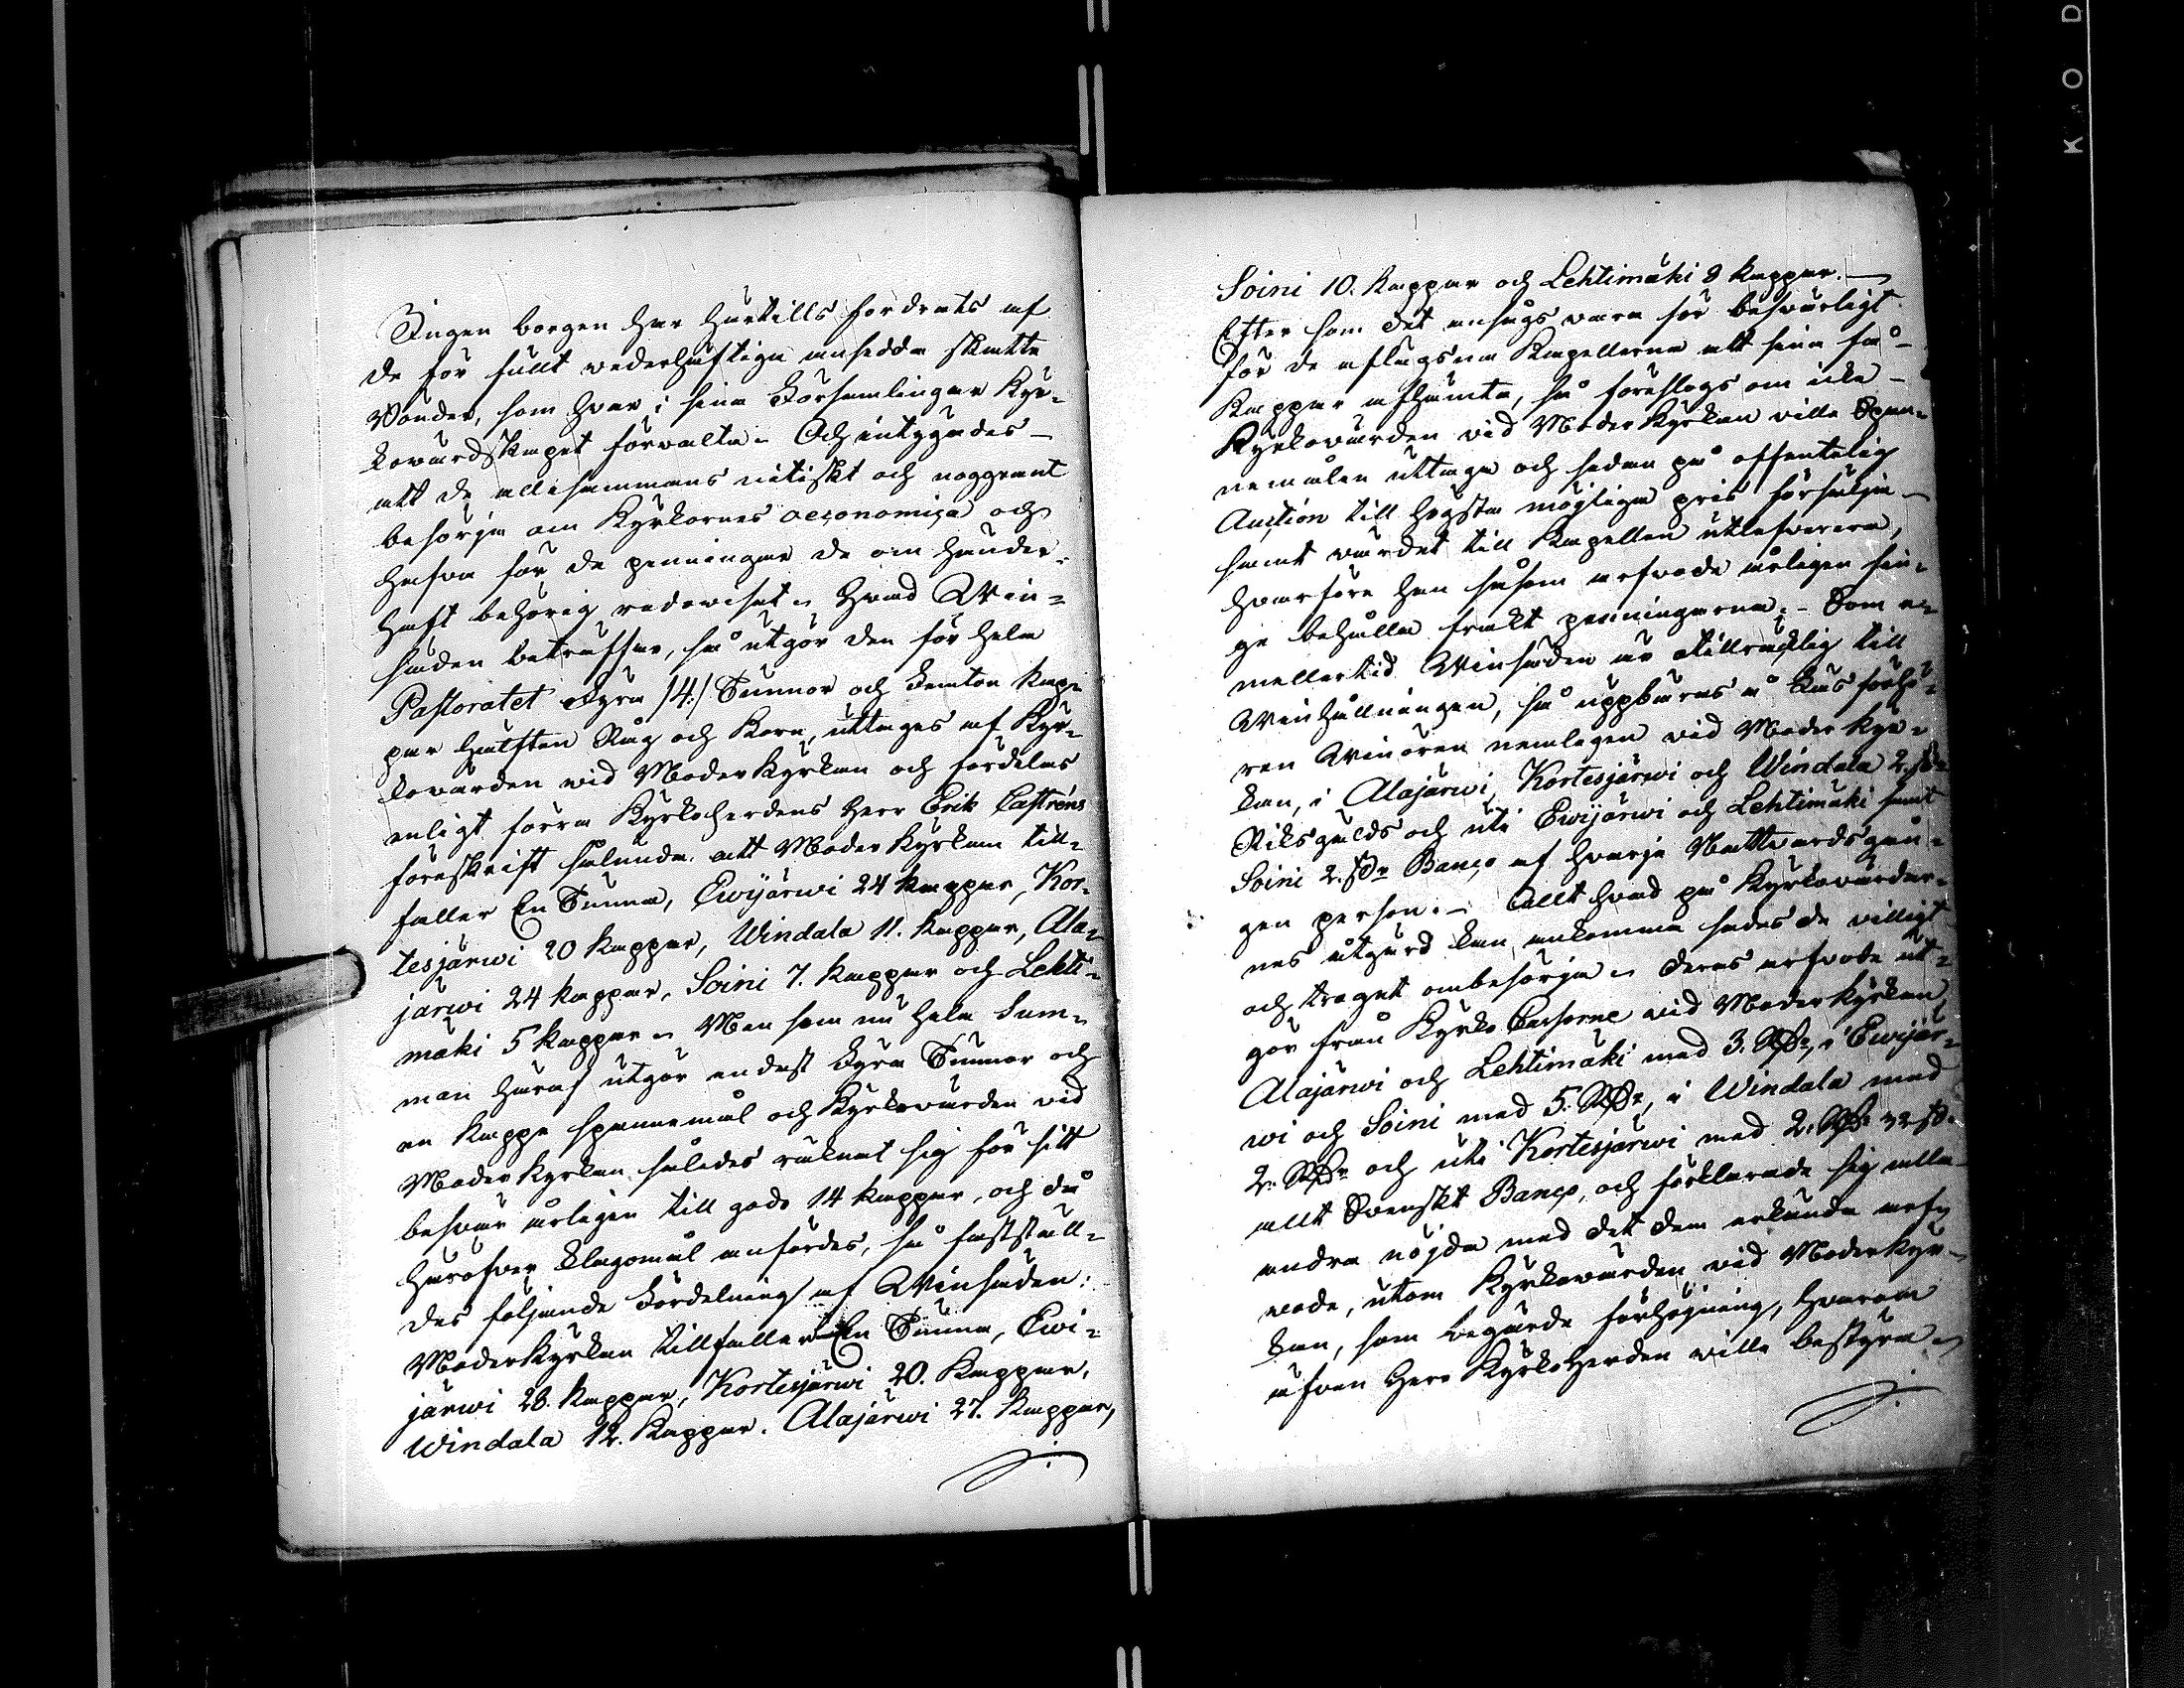 Ingen borgen har härtills fordrats af
de för fullt vederhäftiga ansedda skatte
Bönder, som hvar i sina Församlingar Kyr-
kovärdskapet förvalta. Och intygades
att de allesammans nitiskt och noggrant
besörja om Kyrkornes oeconomiça och
hafva för de penningar de om hander-
haft behörig redowisat. Hvad Win-
säden beträffar, så utgör den för hela
Pastoratet Fyra /4:/ Tunnor och Femton kap-
par hälften Råg och Korn, uttages af Kyr-
kovärden vid Moderkyrkan och fördelas
enligt förra Kyrkoherdens Herr Erik Castréns
föreskrift sålunda att Moderkyrkan till-
faller En Tunna, Ewijärwi 24 kappar, Kor-
tesjärwi 20 kappar, Windala 11. kappar, Ala-
järwi 24 kappar, Soini 7. kappar och Lehti-
mäki 5 kappar. Men som nu hela Sum-
man häraf utgör endast Fyra Tunnor och
en kappe spannemål och Kyrkovärden vid
Moderkyrkan således räknat sig för sitt
besvär årligen till godo 14 kappar, och då
häröfver klagomål anfördes, så fastställ-
des följande Fördelning af Winsäden:
Moderkyrkan tillfaller En Tunna, Ewi-
järwi 28. kappar, Kortesjärwi 20. Kappar,
Windala 12. Kappar. Alajärwi 27. kappar,
Soini 10. kappar och Lehtimäki 8 kappar.
Efter som det ansågs vara för besvärligt
för de aflägsna Kapellerna att sina få
Kappar afhämta, så föreslogs om icke
Kyrkovärden vid Moderkyrkan ville Span-
nemålen uttaga och sedan på offentelig
Auction till högsta möjliga pris försälja
samt värdet till Kapellen utlefverera,
hvarföre han såsom arfvode årligen fin-
ge behålla frakt penningarna. Som e-
mellertid Winsäden är otillräcklig till
Winhållningen, så uppbäres å
ren Winören nemligen vid Moderkyr-
kan, i Alajärwi, Kortesjärwi och Windala 2 sk
Riksgälds och uti Ewijärwi och Lehtimäki samt
Soini 2. sk Banço af hvarje Nattvardsgån-
gen person. Allt hvad på Kyrkovärdar-
nes åtgärd kan ankomma sades de villigt
och troget ombesörja. Deras arfvode ut-
gör från Kyrko Cassorne vid Moderkyrkan,
Alajärwi och Lehtimäki med 3. Rd, i Ewijär-
wi och Soini med 5. Rd, i Windala med
2. Rd och uti Kortesjärwi med 2. Rd 32 sk.
allt Svenskt Banço, och förklarade sig alla
andra nöjda med det dem erkända arf-
vode, utom Kyrkovärden vid Moderkyr-
kan, som begärde förhöjning, hvarom
äfven Herr Kyrkoherden ville bestyra.